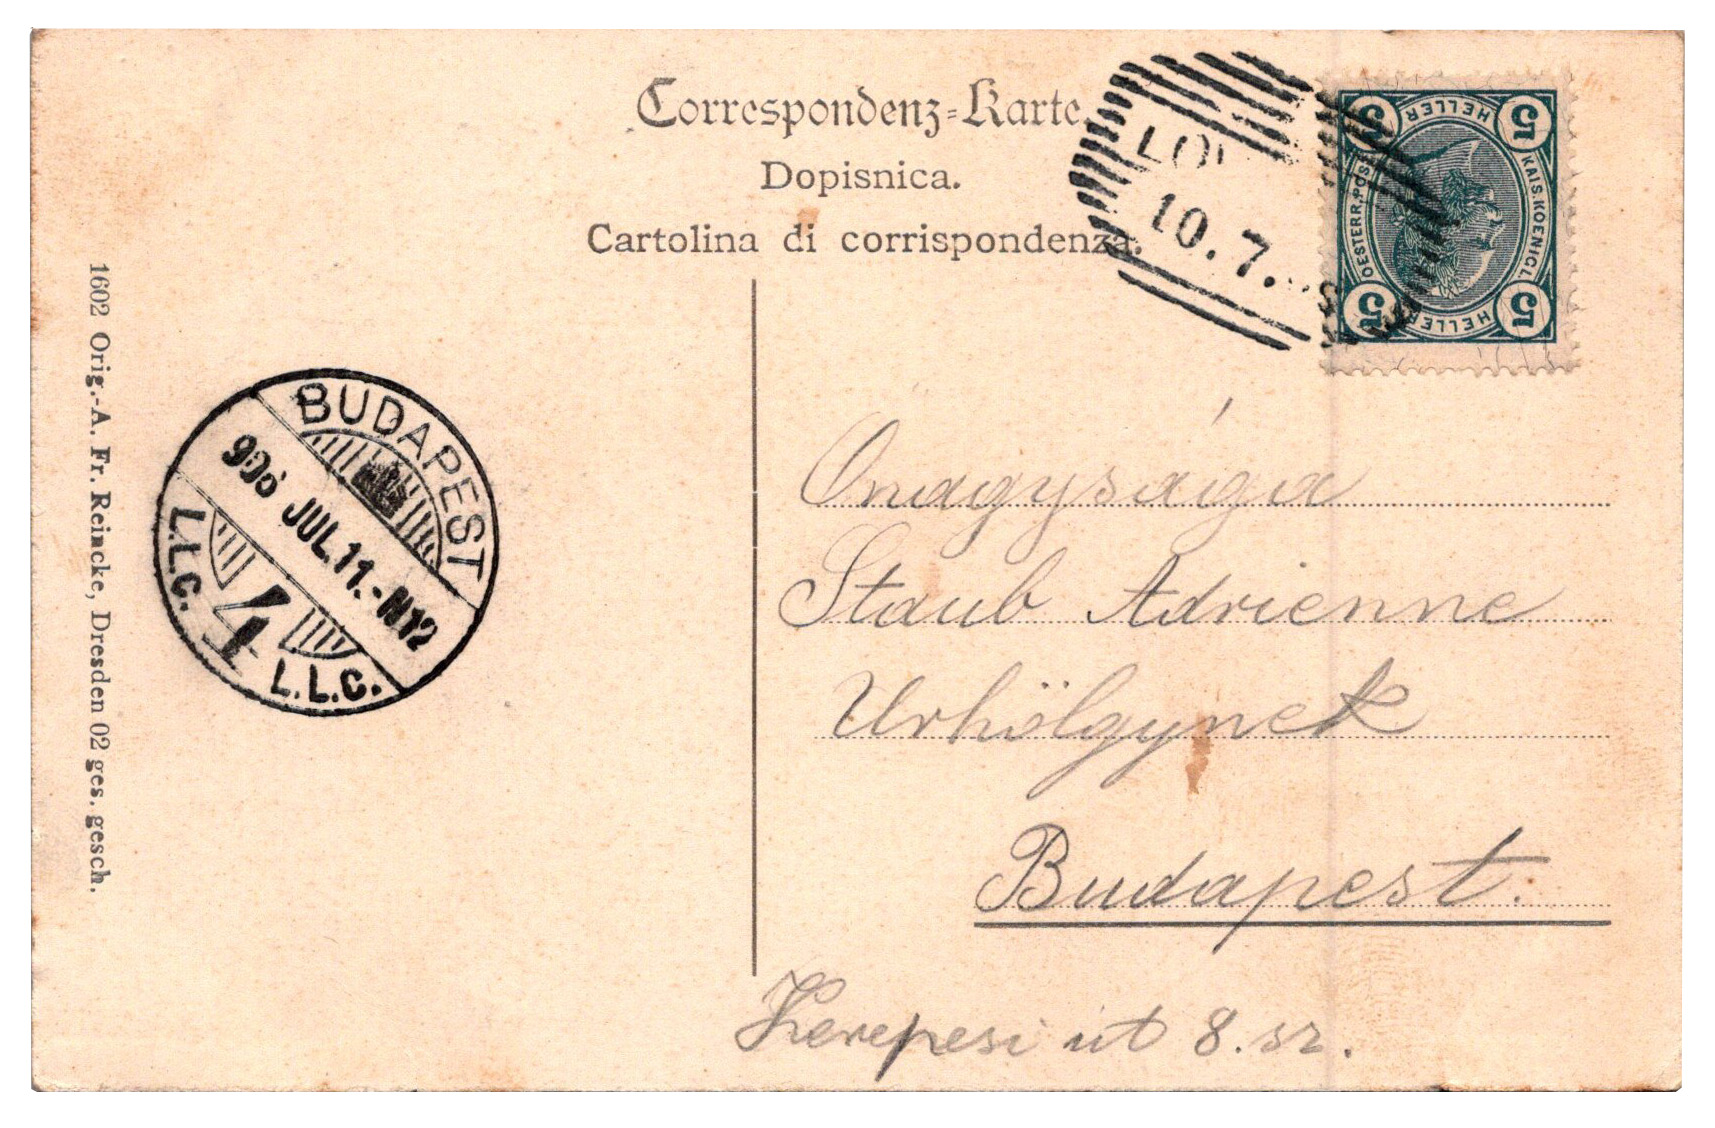 Correspondenz-Karte.
Dopisnica.
Cartolina di corrispondenza.
10.7.
5 HELLER 5
OESTERR. POST
KAIS. KOENIGL.
5 HELLER 5
1602 Orig.-A. Fr. Reincke, Dresden 02 ges. gesch.
BUDAPEST
906 JUL. 11.-N12
4
L.L.C.
L.L.C.
Onagysága
Staub Adrienne
Urhölgynek
Budapest.
Kerepesi út 8. sz.